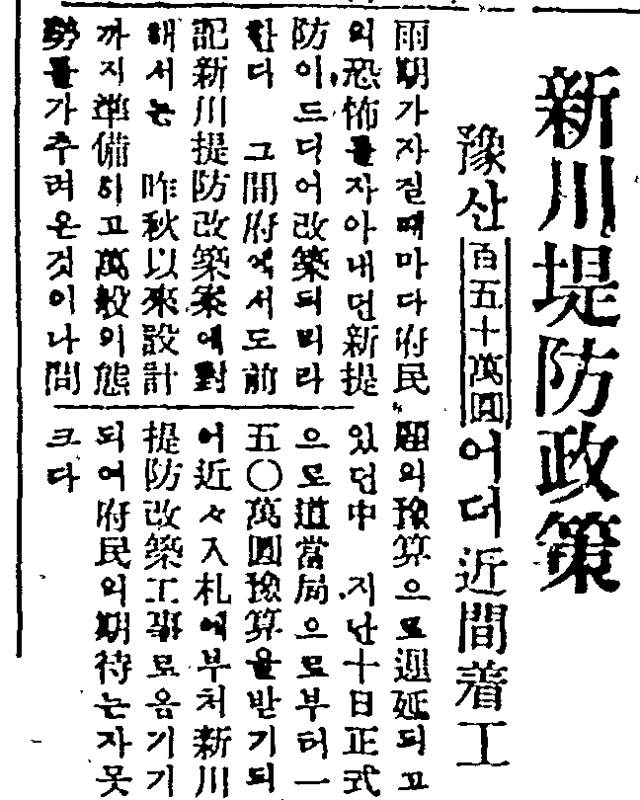 新川堤防政策
豫산 百五十萬圓 어더 近間着工
雨期가자질때마다府民
의恐怖를자아내던新提
防이드디어改築되리라
한다 그間府에서도前
記新川提防改築案에對
해서는 昨秋以來設計
까지準備하고萬般의態
勢를가추려온것이나問
題의豫算으로遅延되고
있던中 지난十日正式
으로道當局으로부터一
五〇萬圓豫算을받기되
어近々入札에부처新川
提防改築工事로옴기기
되여府民의期待는자못
크다